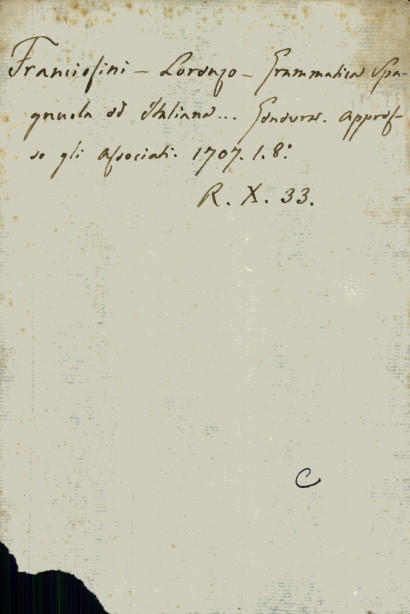 Franciosini - Lorenzo - Grammatica Spa-
gnuola ed Italiana... Genevra. appres-
so gli Associati. 1707. 1. 8.º
R. X. 33.
C